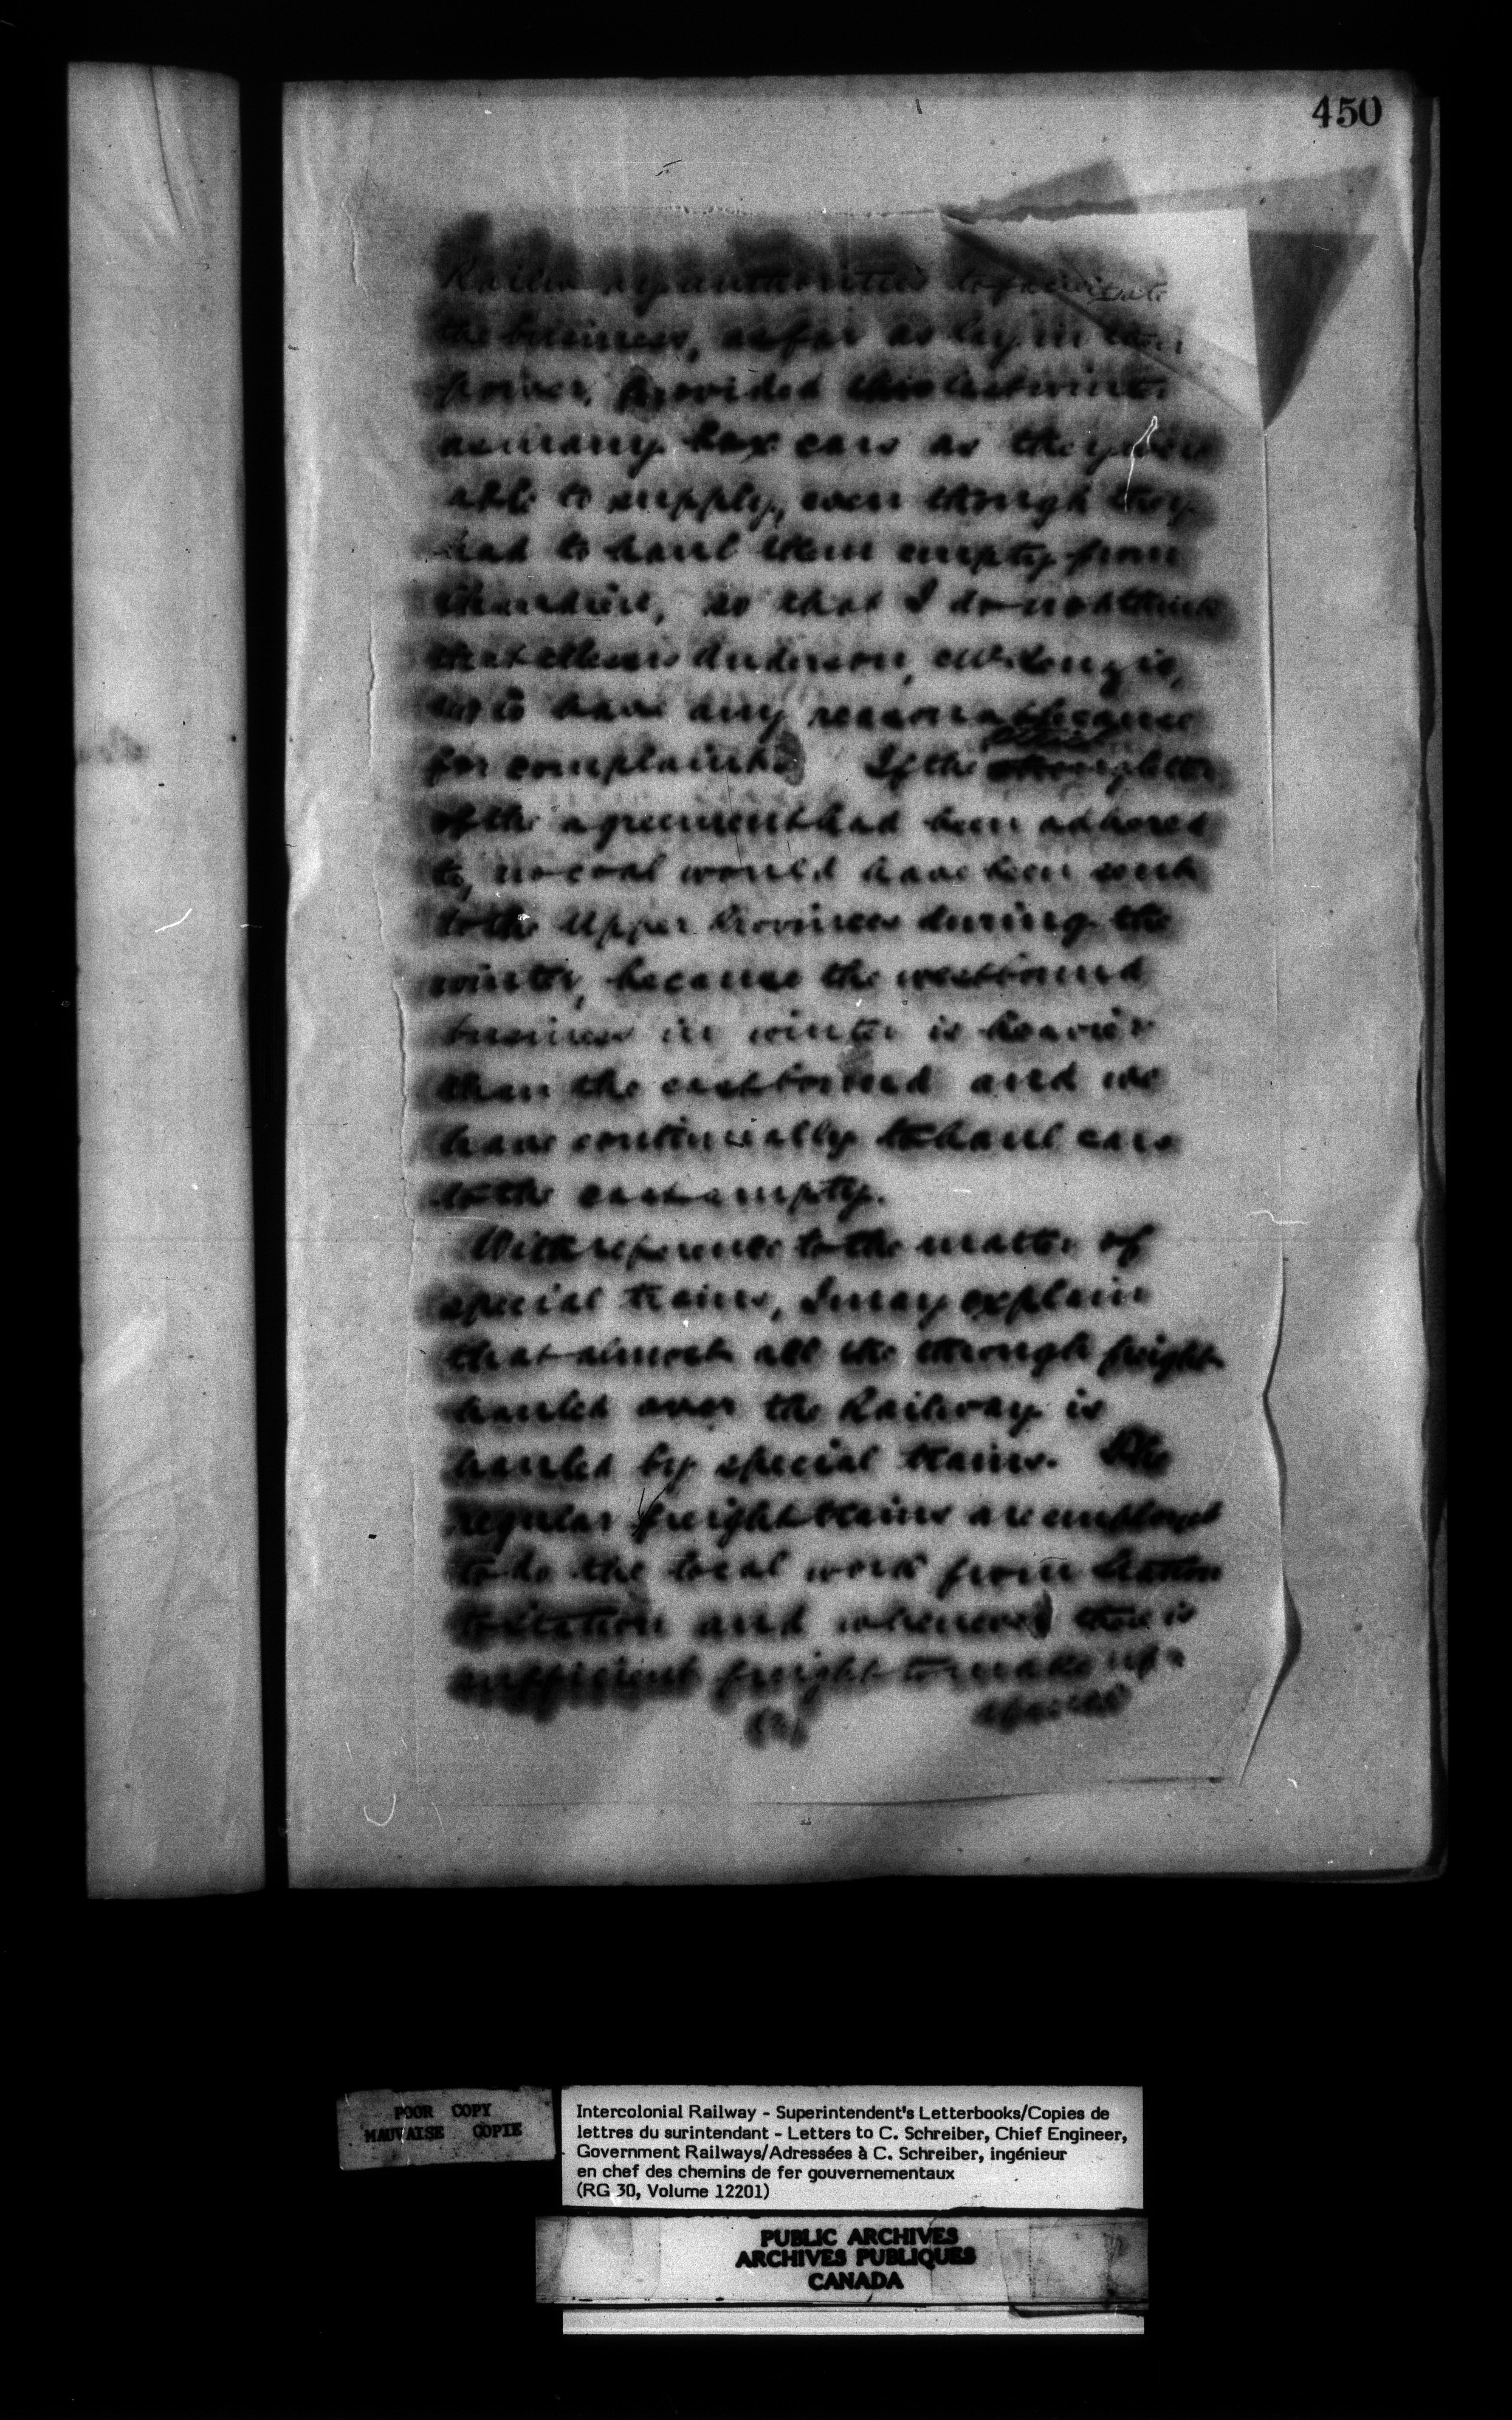 450
Railway authorities to facilitate
the business, as far as lay in their
power, provided this last winter
as many box cars as they were
able to supply, even though they
had to haul them empty from
Chaudiere, so that I do not think
that Messrs Anderson, &
have any reasonable cause
for complaint. If the strict letter
of the agreement had been adhered
to, no coal would have been sent
to the Upper Provinces during the
winter, because the westbound
business in winter is heavier
than the eastbound and we
have continually to haul cars
to the east empty.
With reference to the matter of
special trains, I may explain
that almost all the through freight
hauled over the Railway is
hauled by special trains. The
regular freight trains are employed
to do the local work from station
to station and whenever there is
sufficient freight to make up a
special
POOR COPY
MAUVAISE COPIE
Intercolonial Railway - Superintendent's Letterbooks/Copies de
lettres du surintendant - Letters to C. Schreiber, Chief Engineer,
Government Railways/Adressées à C. Schreiber, ingénieur
en chef des chemins de fer gouvernementaux
(RG 30, Volume 12201)
PUBLIC ARCHIVES
ARCHIVES PUBLIQUES
CANADA